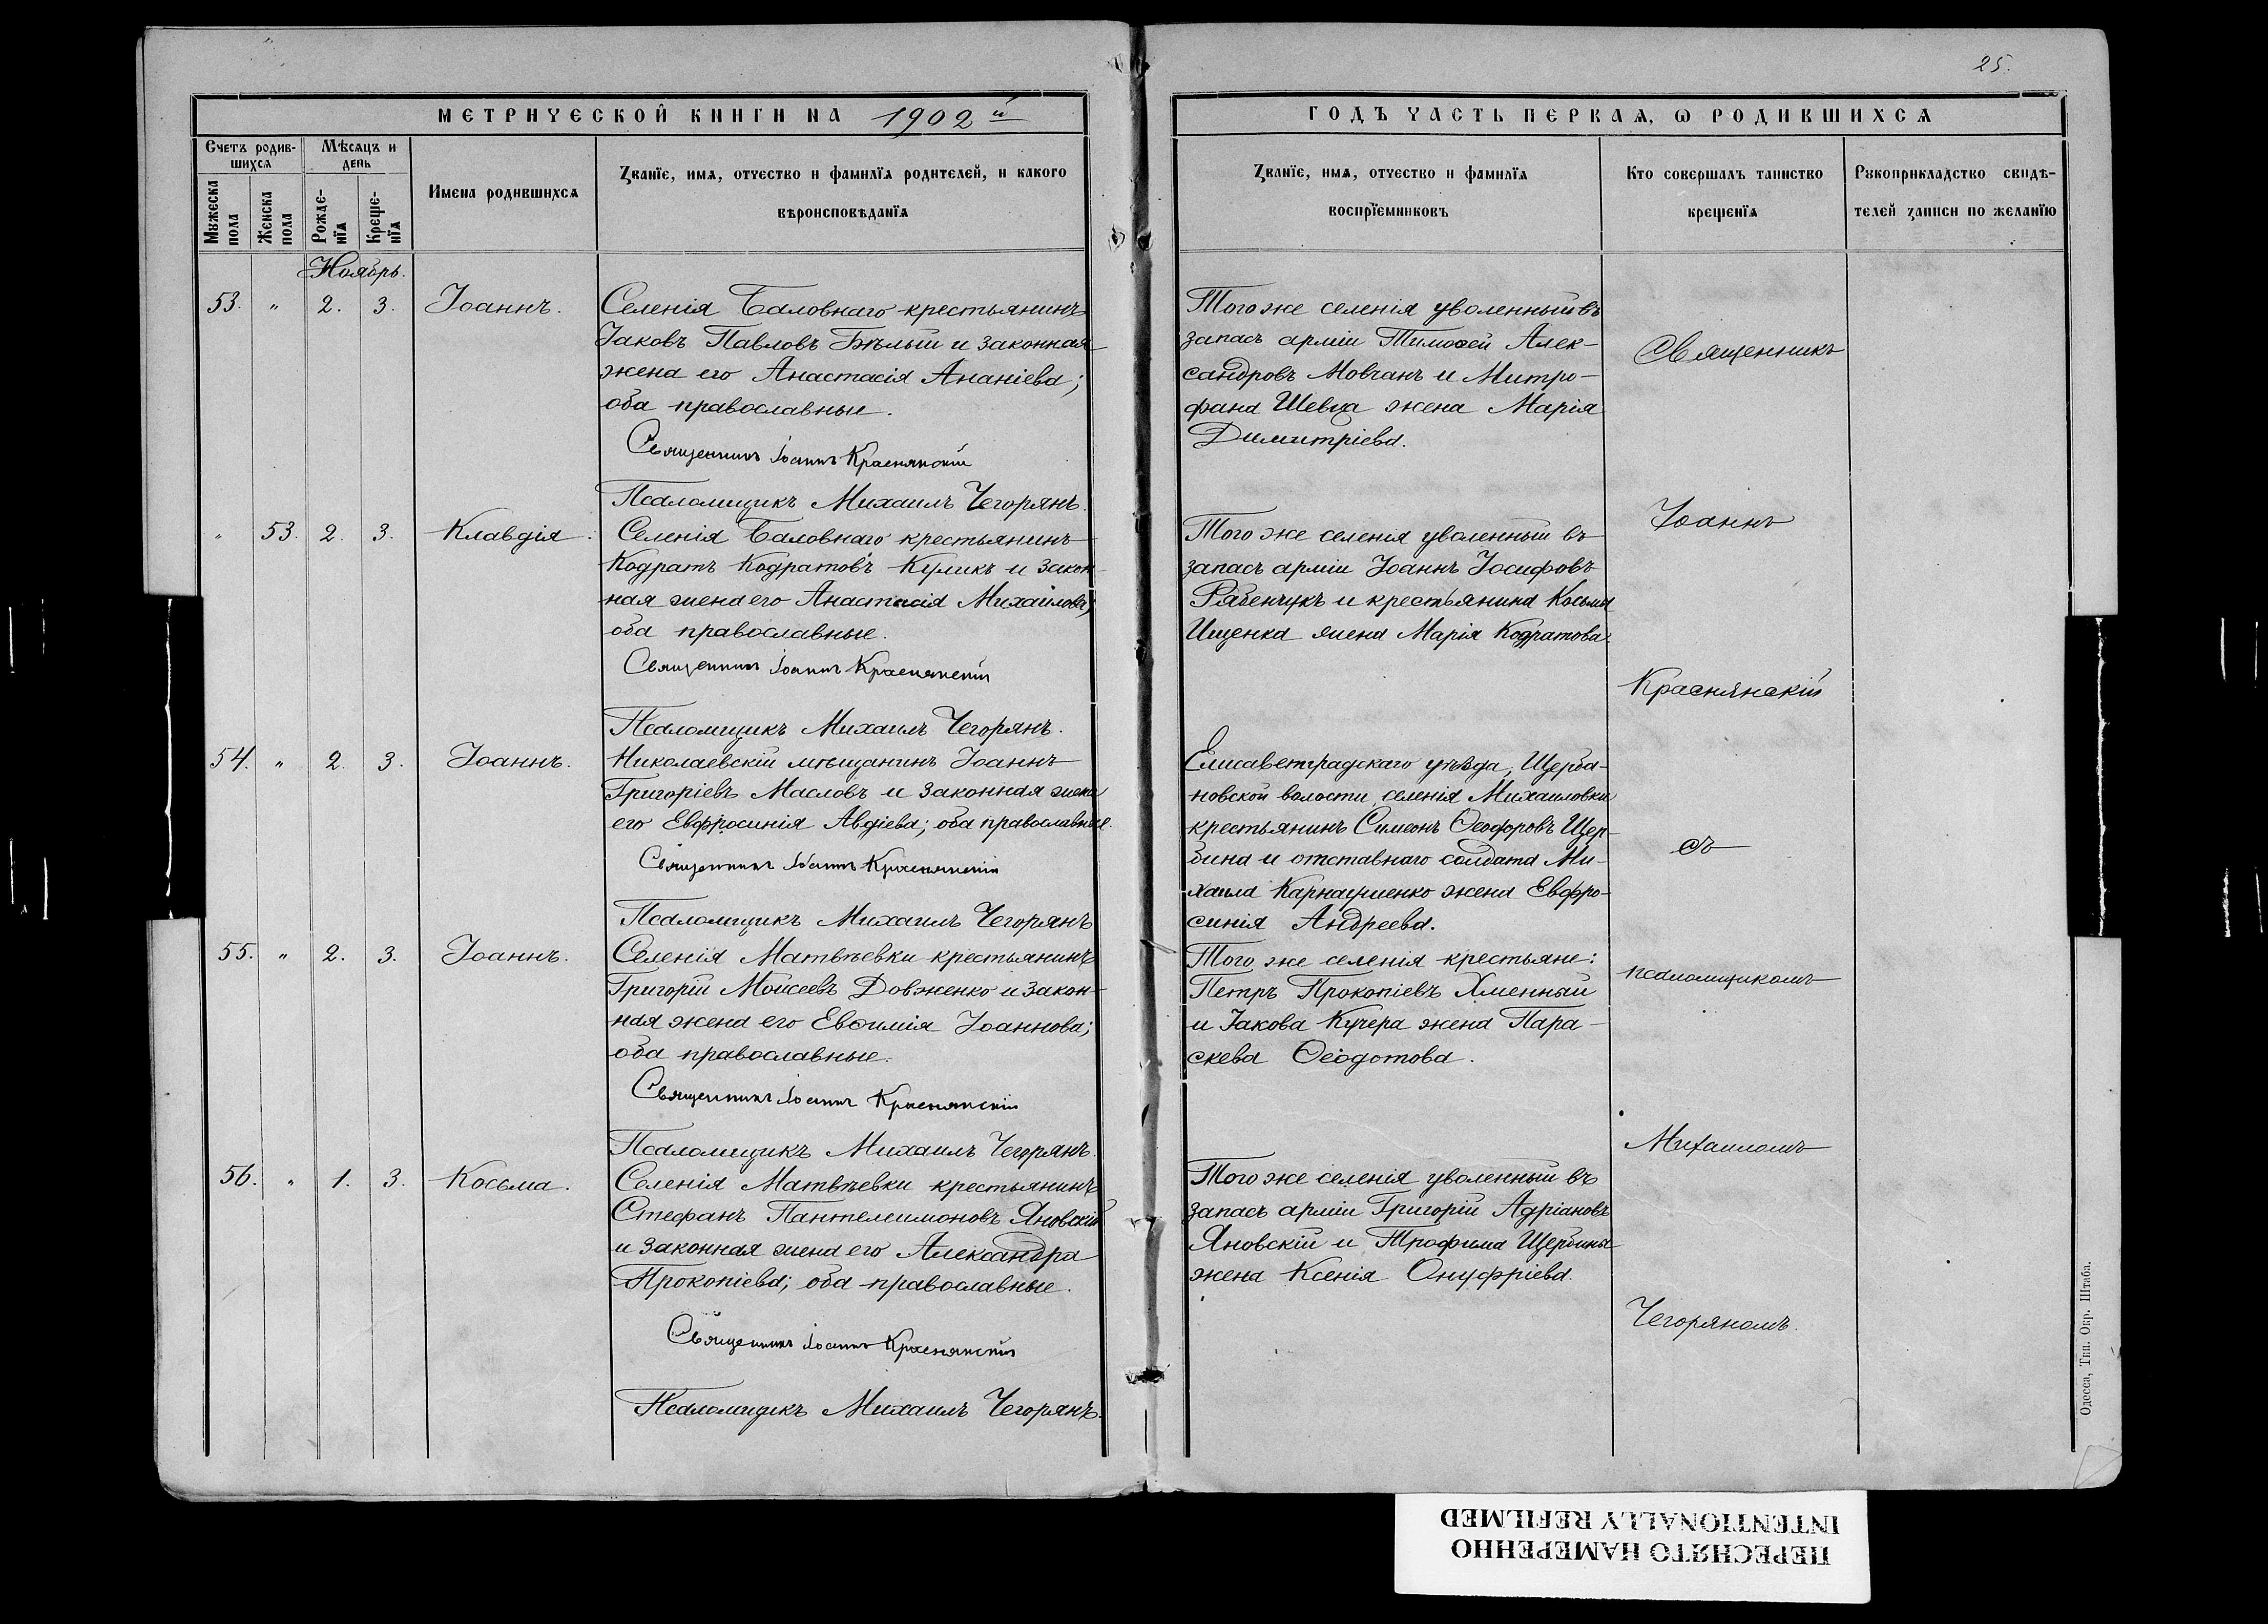 25.
МЕТРИЧЕСКОЙ КНИГИ НА 1902й
ГОДЪ ЧАСТЬ ПЕРВАѦ, Ѡ РОДИВШИХСѦ
Счетъ родив-
шихсѧ
Мѣсѧцъ и
день
Мꙋжеска
пола
Женска
пола
Рожде-
нїѧ
Креще-
нїѧ
Имена родившихсѧ
Званїе, имѧ, отчество и фамилїѧ родителей, и какого
вѣроисповѣданїѧ
Званїе, имѧ, отчество и фамилїѧ
воспрїемниковъ
Кто совершалъ таинство
крещенїѧ
Рꙋкоприкладство свидѣ-
телей записи по желанїю
Ноябрь.
53. " 2. 3. Іоаннъ.
Селенія Баловнаго крестьянинъ
Іаковъ Павловъ Бѣлый и законная
жена его Анастасія Ананіева;
оба православные.
Священникъ Іоаннъ Краснянскій
Псаломщикъ Михаилъ Чегорянъ.
Того же селенія уволенный въ
запасъ арміи Тимоѳей Алек-
сандровъ Мовчанъ и Митро-
фана Шевца жена Марія
Димитріева.
" 53. 2. 3. Клавдія.
Селенія Баловнаго крестьянинъ
Кодратъ Кодратовъ Куликъ и закон-
ная жена его Анастасія Михайлова;
оба православные.
Священникъ Іоаннъ Краснянскій
Псаломщикъ Михаилъ Чегорянъ.
Того же селенія уволенный въ
запасъ арміи Іоаннъ Іосифовъ
Рябенчукъ и крестьянина Косьмы
Ищенка жена Марія Кодратова.
54. " 2. 3. Іоаннъ.
Николаевскій мѣщанинъ Іоаннъ
Григоріевъ Масловъ и законная жена
его Евфросинія Авдіева; оба православные.
Священникъ Іоаннъ Краснянскій
Псаломщикъ Михаилъ Чегорянъ
Елисаветградскаго уѣзда, Щерба-
новской волости, селенія Михаиловки
крестьянинъ Симеонъ Ѳеодоровъ Щер-
бина и отставнаго солдата Ми-
хаила Карнаушенко жена Евфро-
синія Андреева.
55. " 2. 3. Іоаннъ.
Селенія Матвѣевки крестьянинъ
Григорій Моисеевъ Довженко и закон-
ная жена его Евѳимія Іоаннова;
оба православные.
Священникъ Іоаннъ Краснянскій
Псаломщикъ Михаилъ Чегорянъ.
Того же селенія крестьяне:
Петръ Прокопіевъ Хменный
и Іакова Кучера жена Пара-
скева Ѳеодотова.
56. " 1. 3. Косьма.
Селенія Матвѣевки крестьянинъ
Стефанъ Пантелеимоновъ Яновскій
и законная жена его Александра
Прокопіева; оба православные.
Священникъ Іоаннъ Краснянскій
Псаломщикъ Михаилъ Чегорянъ.
Того же селенія уволенный въ
запасъ арміи Григорій Адріановъ
Яновскій и Трофима Щербины
жена Ксенія Онуфріева.
Священникъ
Іоаннъ
Краснянскій
съ
псаломщикомъ
Михаиломъ
Чегоряномъ.
Одесса, Тип. Окр. Штаба.
ПЕРЕСНЯТО НАМЕРЕННО
INTENTIONALLY REFILMED